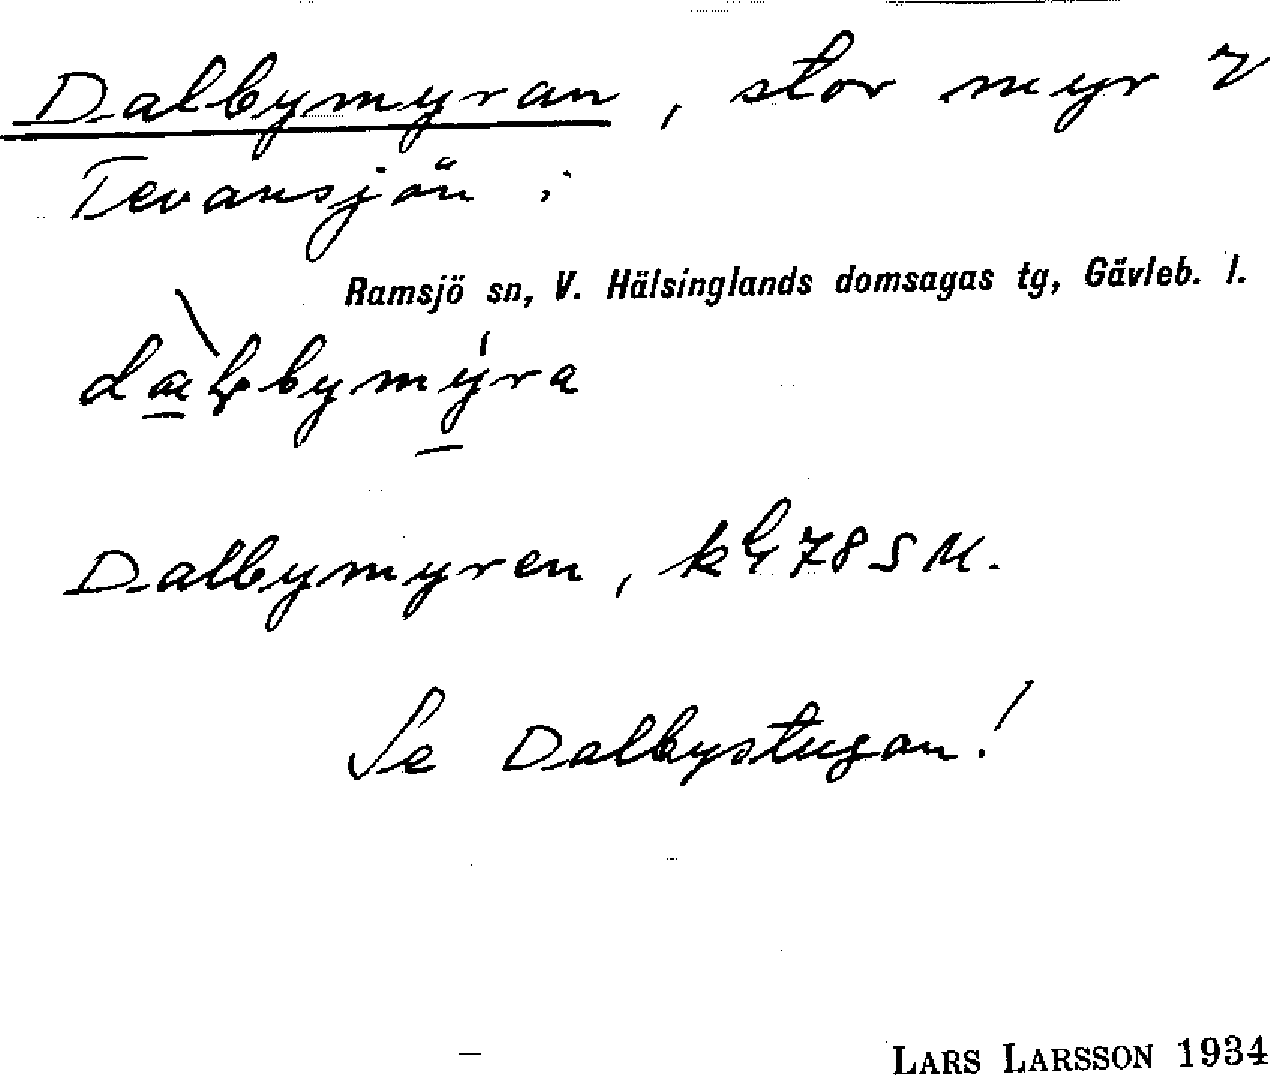 Dalbymyran, stor myr v
Tevansjön i
Ramsjö sn, V. Hälsinglands domsagas tg, Gävleb. l.
Dalbymyren, kbl 78 SM.
Se Dalbystugan!
LARS LARSSON 1934